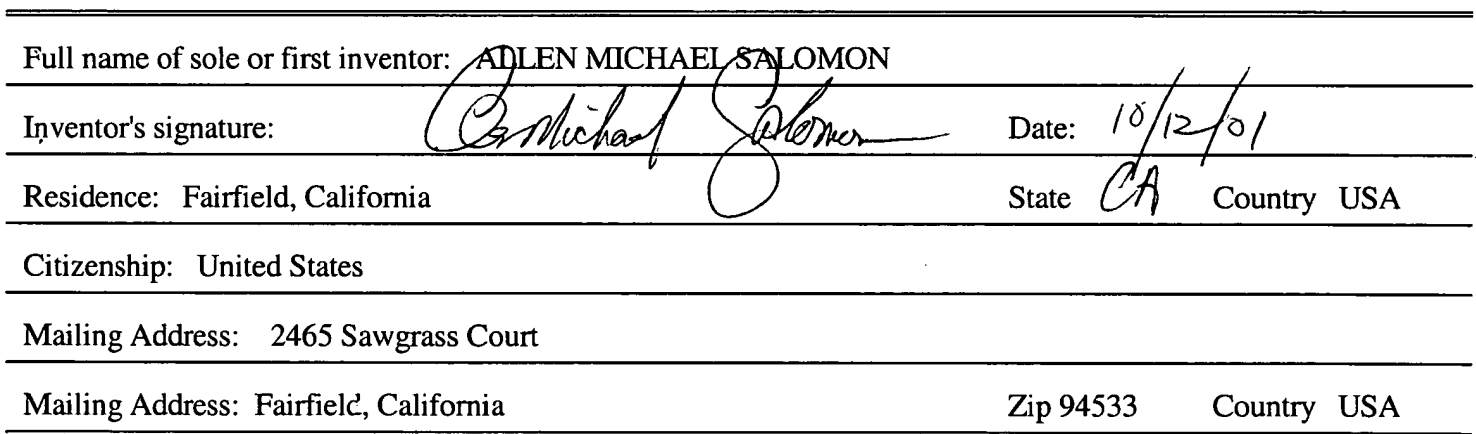 Full name of sole or first inventor: ADLEN MICHAEL SALOMON
Inventor's signature: Michael Salomon Date: 10/12/01
Residence: Fairfield, California State CA Country USA
Citizenship: United States
Mailing Address: 2465 Sawgrass Court
Mailing Address: Fairfield, California Zip 94533 Country USA